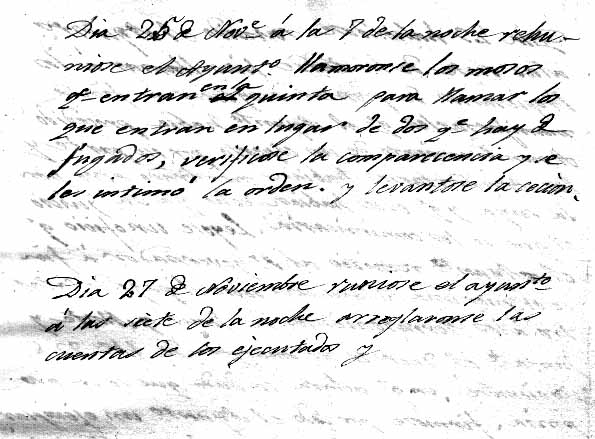 Dia 25 de Nov.e á la 7 de la noche rehu-
niose el Ayunto. Llamaronse los mosos
q.e entran en la quinta para llamar los
que entran en lugar de dos q.e hay d
fugados, verificose la comparecencia y se
les intimó la orden. y levantose la cecion.
Dia 27 de Noviembre runiose el ayunto
á las siete de la noche arreglaronse las
cuentas de los ejecutados y